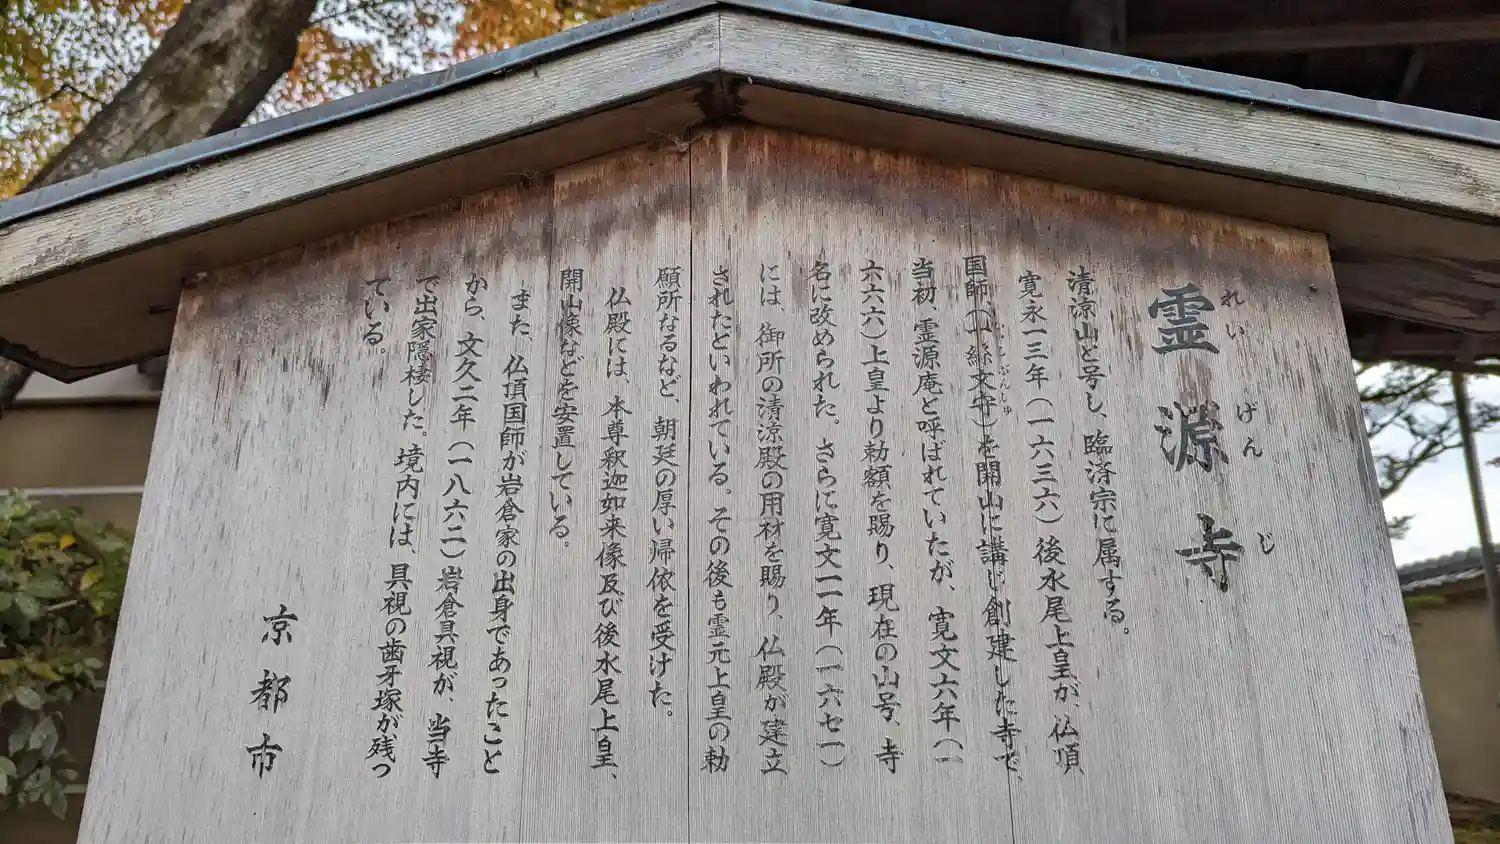 霊源寺
れいげんじ
清涼山と号し、臨済宗に属する。
寛永一三年（一六三六）後水尾上皇が、仏頂
国師（一絲文守）を開山に講じ創建した寺で、
当初、霊源庵と呼ばれていたが、寛文六年（一
六六六）上皇より勅額を賜り、現在の山号、寺
名に改められた。さらに寛文一一年（一六七一）
には、御所の清涼殿の用材を賜り、仏殿が建立
されたといわれている。その後も霊元上皇の勅
願所なるなど、朝廷の厚い帰依を受けた。
仏殿には、本尊釈迦如来像及び後水尾上皇、
開山像などを安置している。
また、仏頂国師が岩倉家の出身であったこと
から、文久二年（一八六二）岩倉具視が、当寺
で出家隠棲した。境内には、具視の歯牙塚が残っ
ている。
京都市